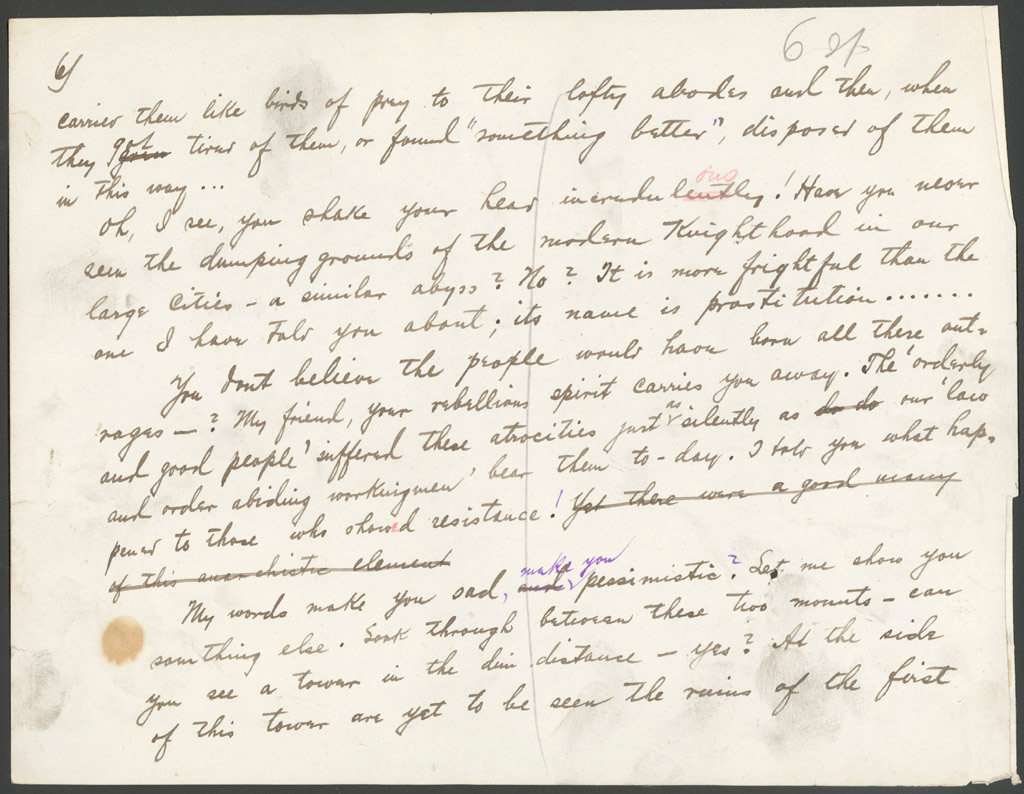 6)
6 2f
carried them like birds of prey to their lofty abodes and then, when
they grew got tired of them, or found "something better", disposed of them
in this way ...
Oh, I see, you shake your head incredulently ous! Have you never
seen the dumping grounds of the modern Knighthood in our
large cities – a similar abyss? No? It is more frightful than the
one I have told you about; its name is prostitution.......
You dont believe the people would have born all there out=
rages —? My friend, your rebellious spirit carries you away. The 'orderly
and good people' suffered these atrocities just as silently as do do our 'law
and order abiding workingmen' bear them to-day. I told you what hap=
pened to those who showed resistance! Yet there were a good many
of this anarchistic element
My words make you sad, and make you pessimistic? Let me show you
something else. Look through between these two mounts – can
you see a tower in the dim distance – yes? At the side
of this tower are yet to be seen the ruins of the first